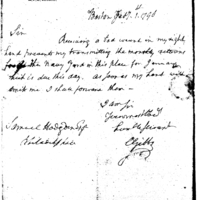 Boston Feby. 1st 1798
Sir
Having a bad wound in my right
hand prevents my transmitting the monthly returns
for the Navy Yard in this place for January
that is due this day. As soon as my hand will
admit I shall forward them —
I am Sir
Your
Samuel Hodgdon Esqr
Philadelphia